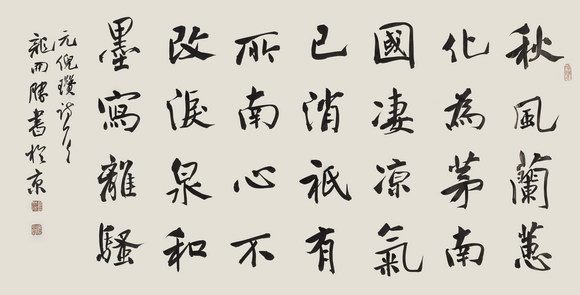 秋風蘭蕙
化為茅南
國凄涼氣
已消祇有
所南心不
改淚泉和
墨寫離騷
元倪瓚詩
龍開勝書於京